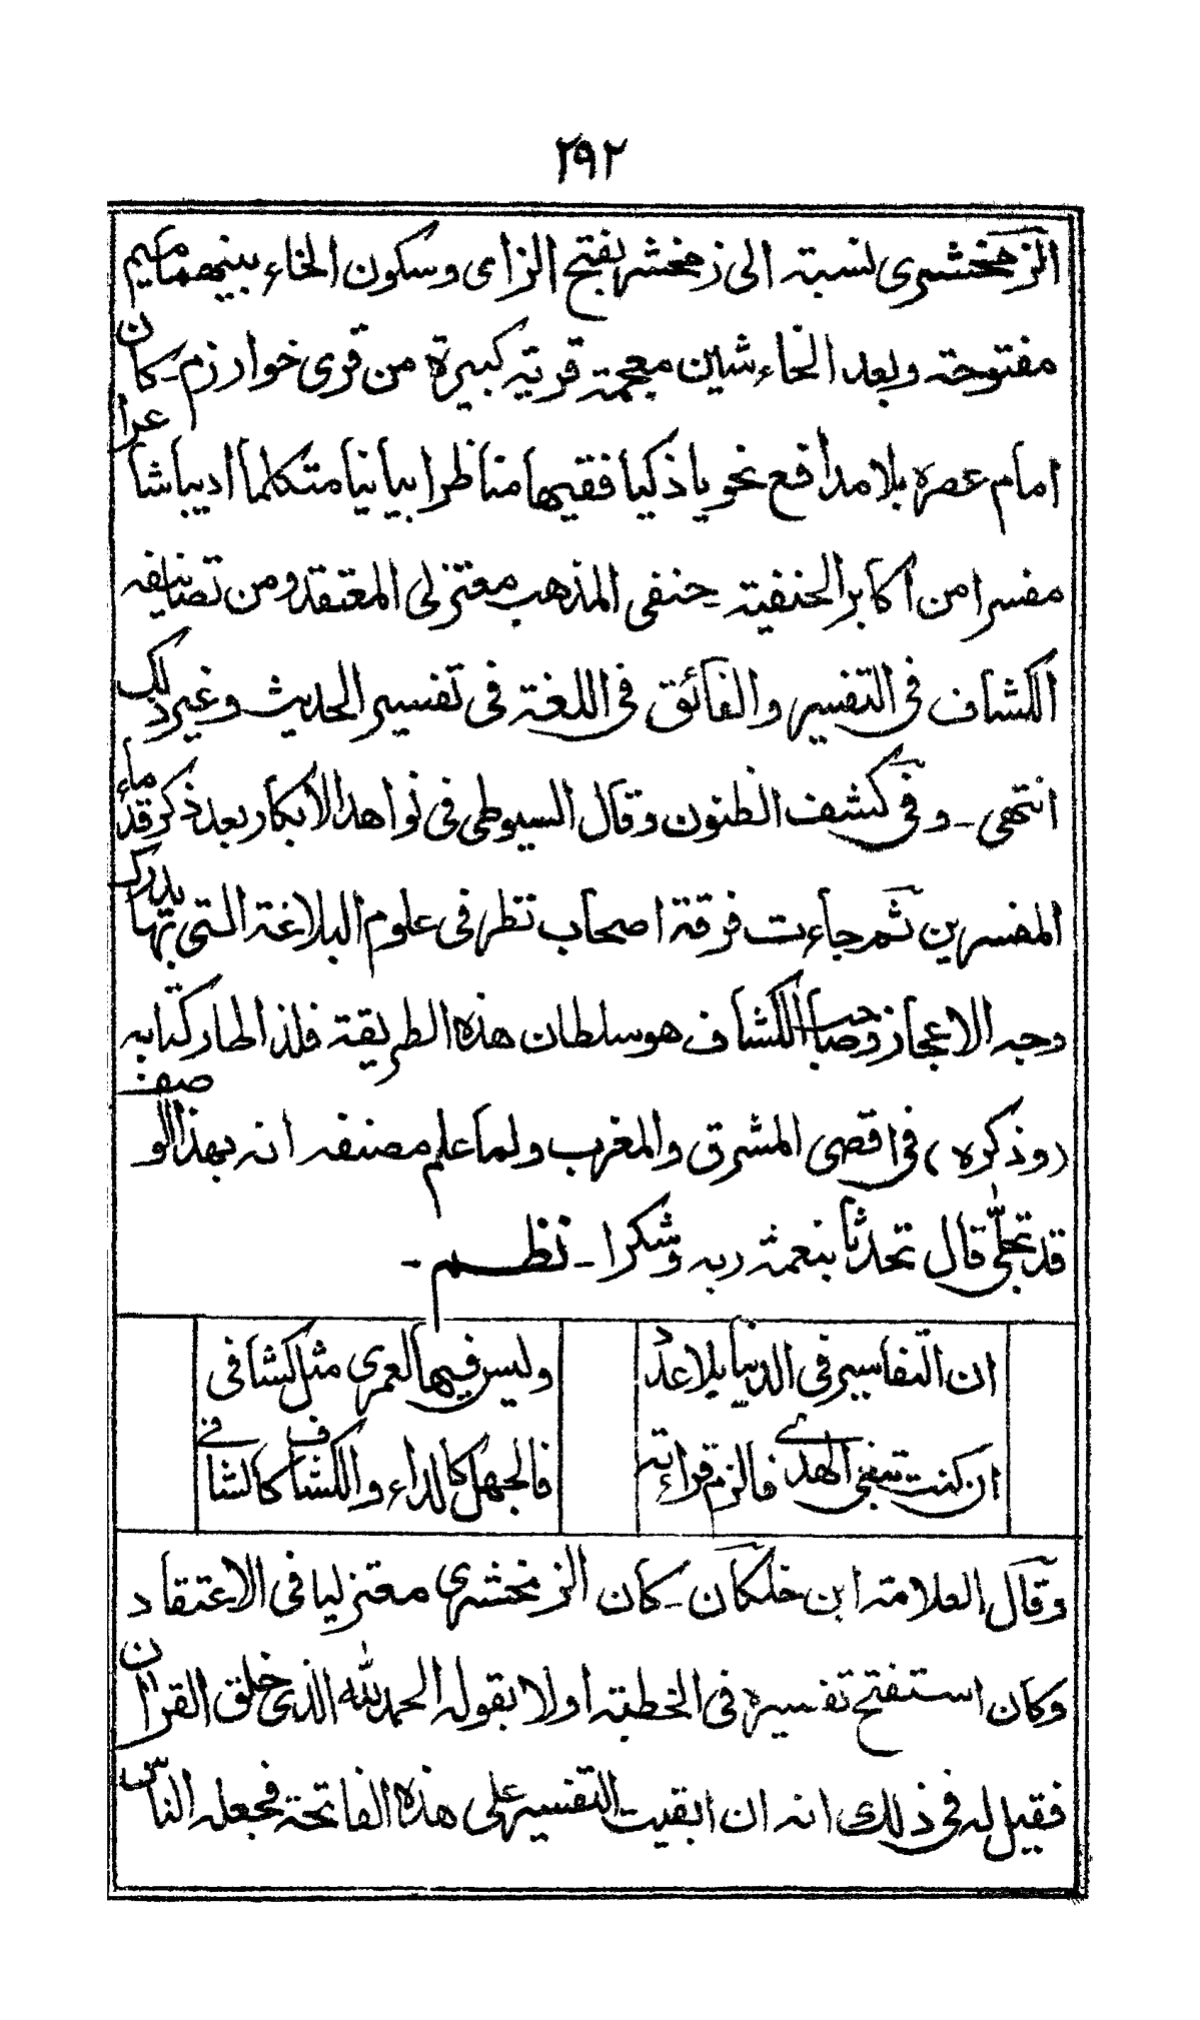 ٢٩٢
الزمخشری نسبتہ الی زمخشر بفتح الزامی وسکون الخاء بینھما میم
مفتوحتہ وبعد الخاء شین معجمتہ قریتہ کبیرۃ من قری خوارزم ۔ کان
امام عصرہ بلا مدافع نحویا ذکیا فقیھا مناظرا بیانیا متکلما ادیبا شاعرا
مفسرا من اکابر الحنفیتہ ۔ حنفی المذھب معتزلی المعتقد ومن تصانیفہ
الکشاف فی التفسیر والفائق فی اللغۃ فی تفسیر الحدیث وغیر ذلک
انتھی ۔ وفی کشف الظنون وقال السیوطی فی نواھد الابکار بعد ذکر قدماء
المفسرین ثم جاءت فرقۃ اصحاب نظر فی علوم البلاغۃ التی بھا یدرک
وجہ الاعجاز وصاحب الکشاف ھو سلطان ھذہ الطریقۃ فلذا طار کتابہ
(وذکرہ) فی اقصی المشرق والمغرب ولما علم مصنفہ انہ بھذا الوصف
قد تجلّی قال تحدثا بنعمۃ ربہ وشکرا ۔ نظم ۔
ان التفاسیر فی الدنیا بلا عدد ولیس فیھا لعمری مثل کشافی
ان کنت تبغی الھدی فالزم قراءتہ فالجھل کالداء والکشاف کالشافی
وقال العلامتہ ابن خلکان ۔ کان الزمخشری معتزلیا فی الاعتقاد
وکان استفتح تفسیرہ فی الخطبتہ اولا بقولہ الحمد للہ الذی خلق القرآن
فقیل لہ فی ذلک انہ ان ابقیت التفسیر علی ھذہ الفاتحۃ فجعلہ الناس